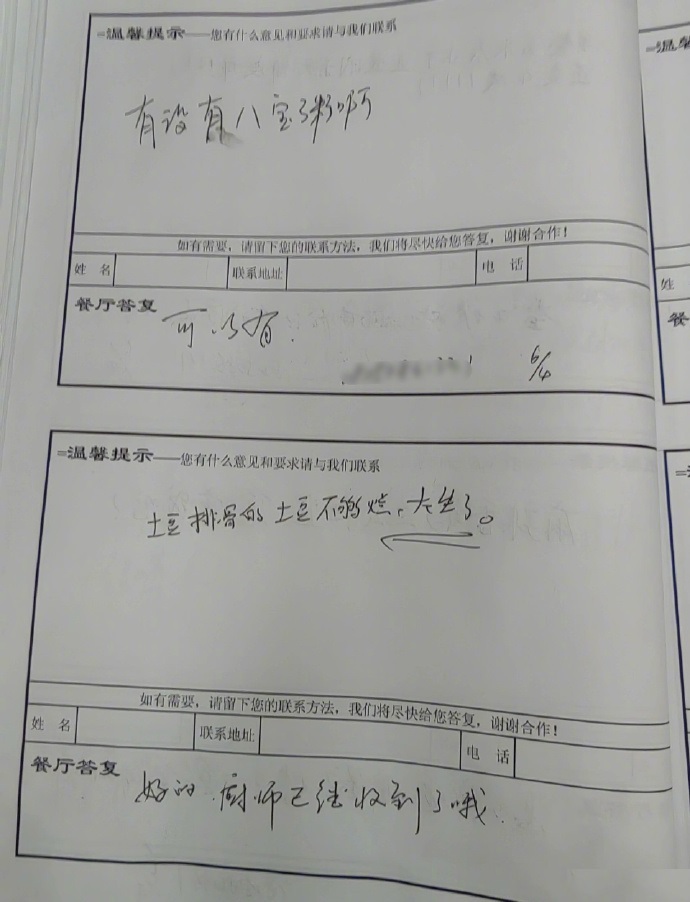 =温馨提示——您有什么意见和要求请与我们联系
有没有八宝粥啊
如有需要，请留下您的联系方法，我们将尽快给您答复，谢谢合作！
姓 名 联系地址 电 话
餐厅答复
可以有.
6/4
=温馨提示——您有什么意见和要求请与我们联系
土豆排骨的土豆不够烂，太生了。
如有需要，请留下您的联系方法，我们将尽快给您答复，谢谢合作！
姓 名 联系地址 电 话
餐厅答复
好的 厨师已经收到了哦.
=温馨
姓
餐